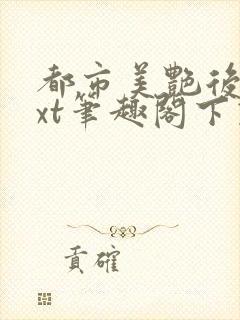 都市美艷後
xt筆趣閣下
貢確